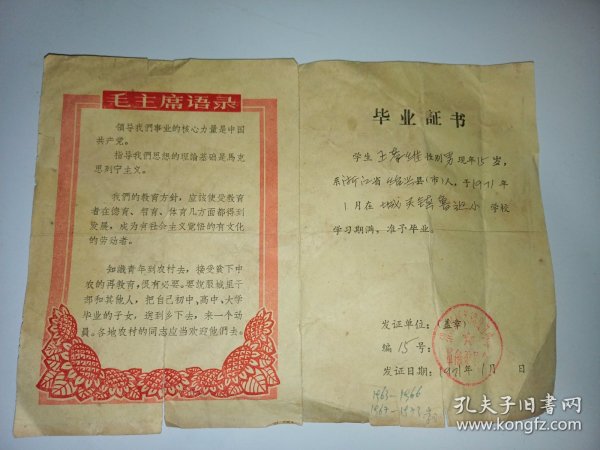 毛主席语录
领导我們事业的核心力量是中国
共产党。
指导我們思想的理論基础是馬克
思列宁主义。
我們的教育方針，应該使受教育
者在德育、智育、体育几方面都得到
发展，成为有社会主义觉悟的有文化
的劳动者。
知識青年到农村去，接受貧下中
农的再教育，很有必要。要說服城里干
部和其他人，把自己初中、高中、大学
毕业的子女，送到乡下去，来一个动
員。各地农村的同志应当欢迎他們去。
毕业証书
学生 王 性别 男 现年 15 岁，
系 浙江 省 绍兴 县（市）人，于 1971 年
1 月在 城关镇鲁迅小 学校
学习期满，准予毕业。
发证单位：（盖章）
编 15 号：
发证日期：1971 年 1 月 日
1963—1966
孔夫子旧书网
www.kongfz.com